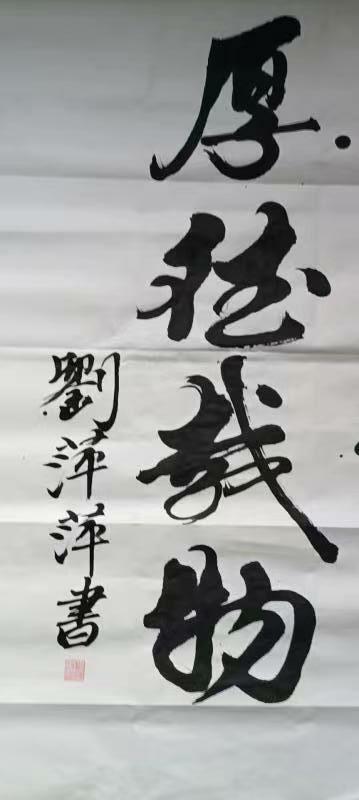 厚德载物
劉萍萍書